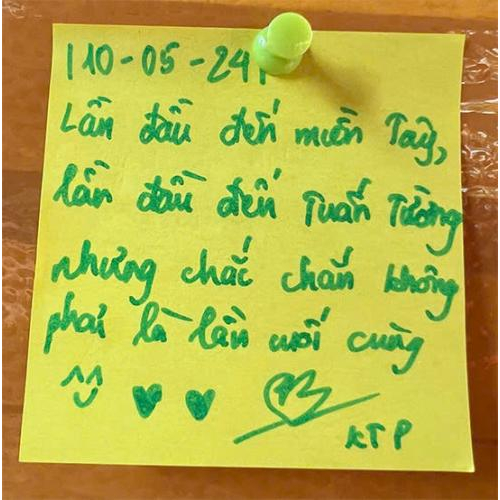 |10-05-24|
Lần đầu đến miền Tây,
lần đầu đến Tuấn Tường
nhưng chắc chắn không
phải là lần cuối cùng
^^
KTP